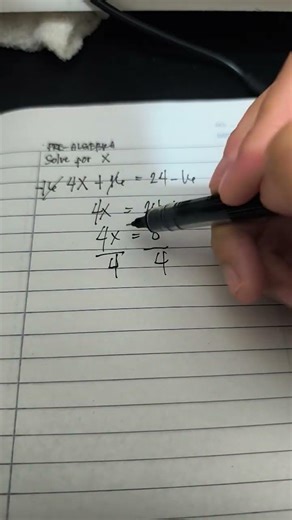 PRE-ALGEBRA
Solve for X
-16 4X + 16 = 24 - 16
4X =
4X = 8
4 4